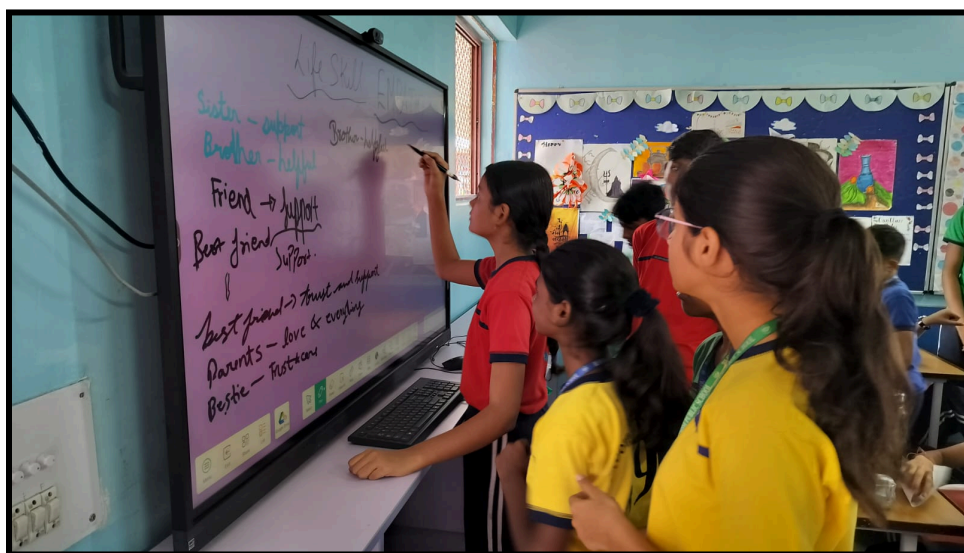 Life Skill
Sister - support
Brother - helpful
Brother - helpful
Friend → support
Best friend
Support.
best friend → trust and support
Parents - love & everything
Bestie - Trust & care